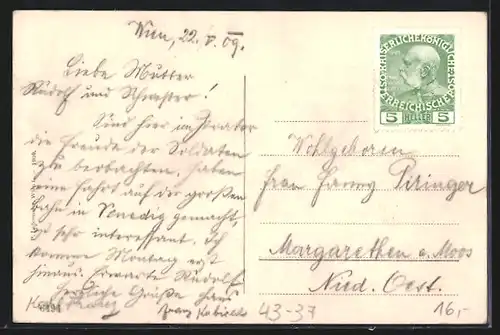 Wien, 22. V. 09.
Liebe Mutter
Rudolf und Schwester!
Sind hier im Prater
die Freude der Soldaten
zu beobachten, haben
eine Fahrt auf der großen
Bahn in Venedig gemacht,
sehr interessant. Ich
komme Montag erst
hinaus. Erwarte Rudolf
herzliche Grüße
Franz
KAISERLICHE KÖNIGLICHE
ÖSTERREICHISCHE
5 HELLER 5
Wohlgeboren
Frau Fanny Piringer
Margarethen a. Moos
Nied. Oest.
43-37
16,-